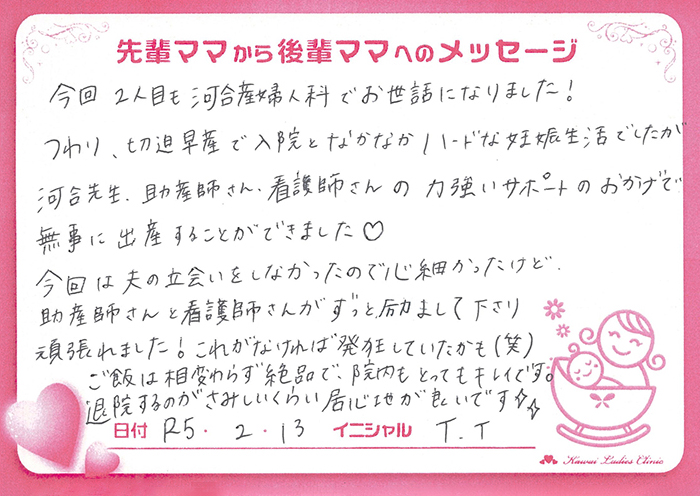 先輩ママから後輩ママへのメッセージ
今回 2人目も 河合産婦人科でお世話になりました！
つわり、切迫早産で入院となかなかハードな妊娠生活でしたが
河合先生、助産師さん、看護師さんの力強いサポートのおかげで
無事に出産することができました♡
今回は夫の立会いをしなかったので心細かったけど、
助産師さんと看護師さんがずっと励まして下さり
頑張れました！これがなければ発狂していたかも(笑)
ご飯は相変わらず絶品で、院内もとってもキレイです。
退院するのがさみしいくらい居心地が良いです☆☆
日付 R5・2・13 イニシャル T.T
Kawai Ladies Clinic